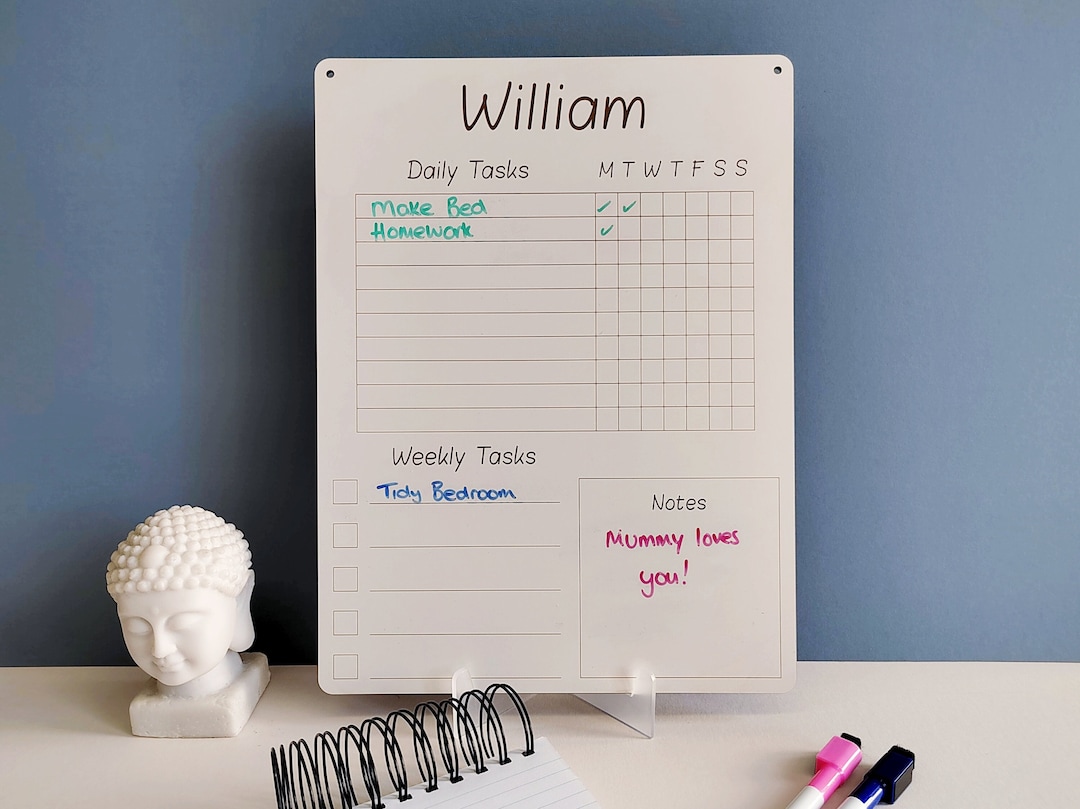 William
Daily Tasks M T W T F S S
Make Bed ✓ ✓
Homework ✓
Weekly Tasks
Tidy Bedroom
Notes
Mummy loves
you!